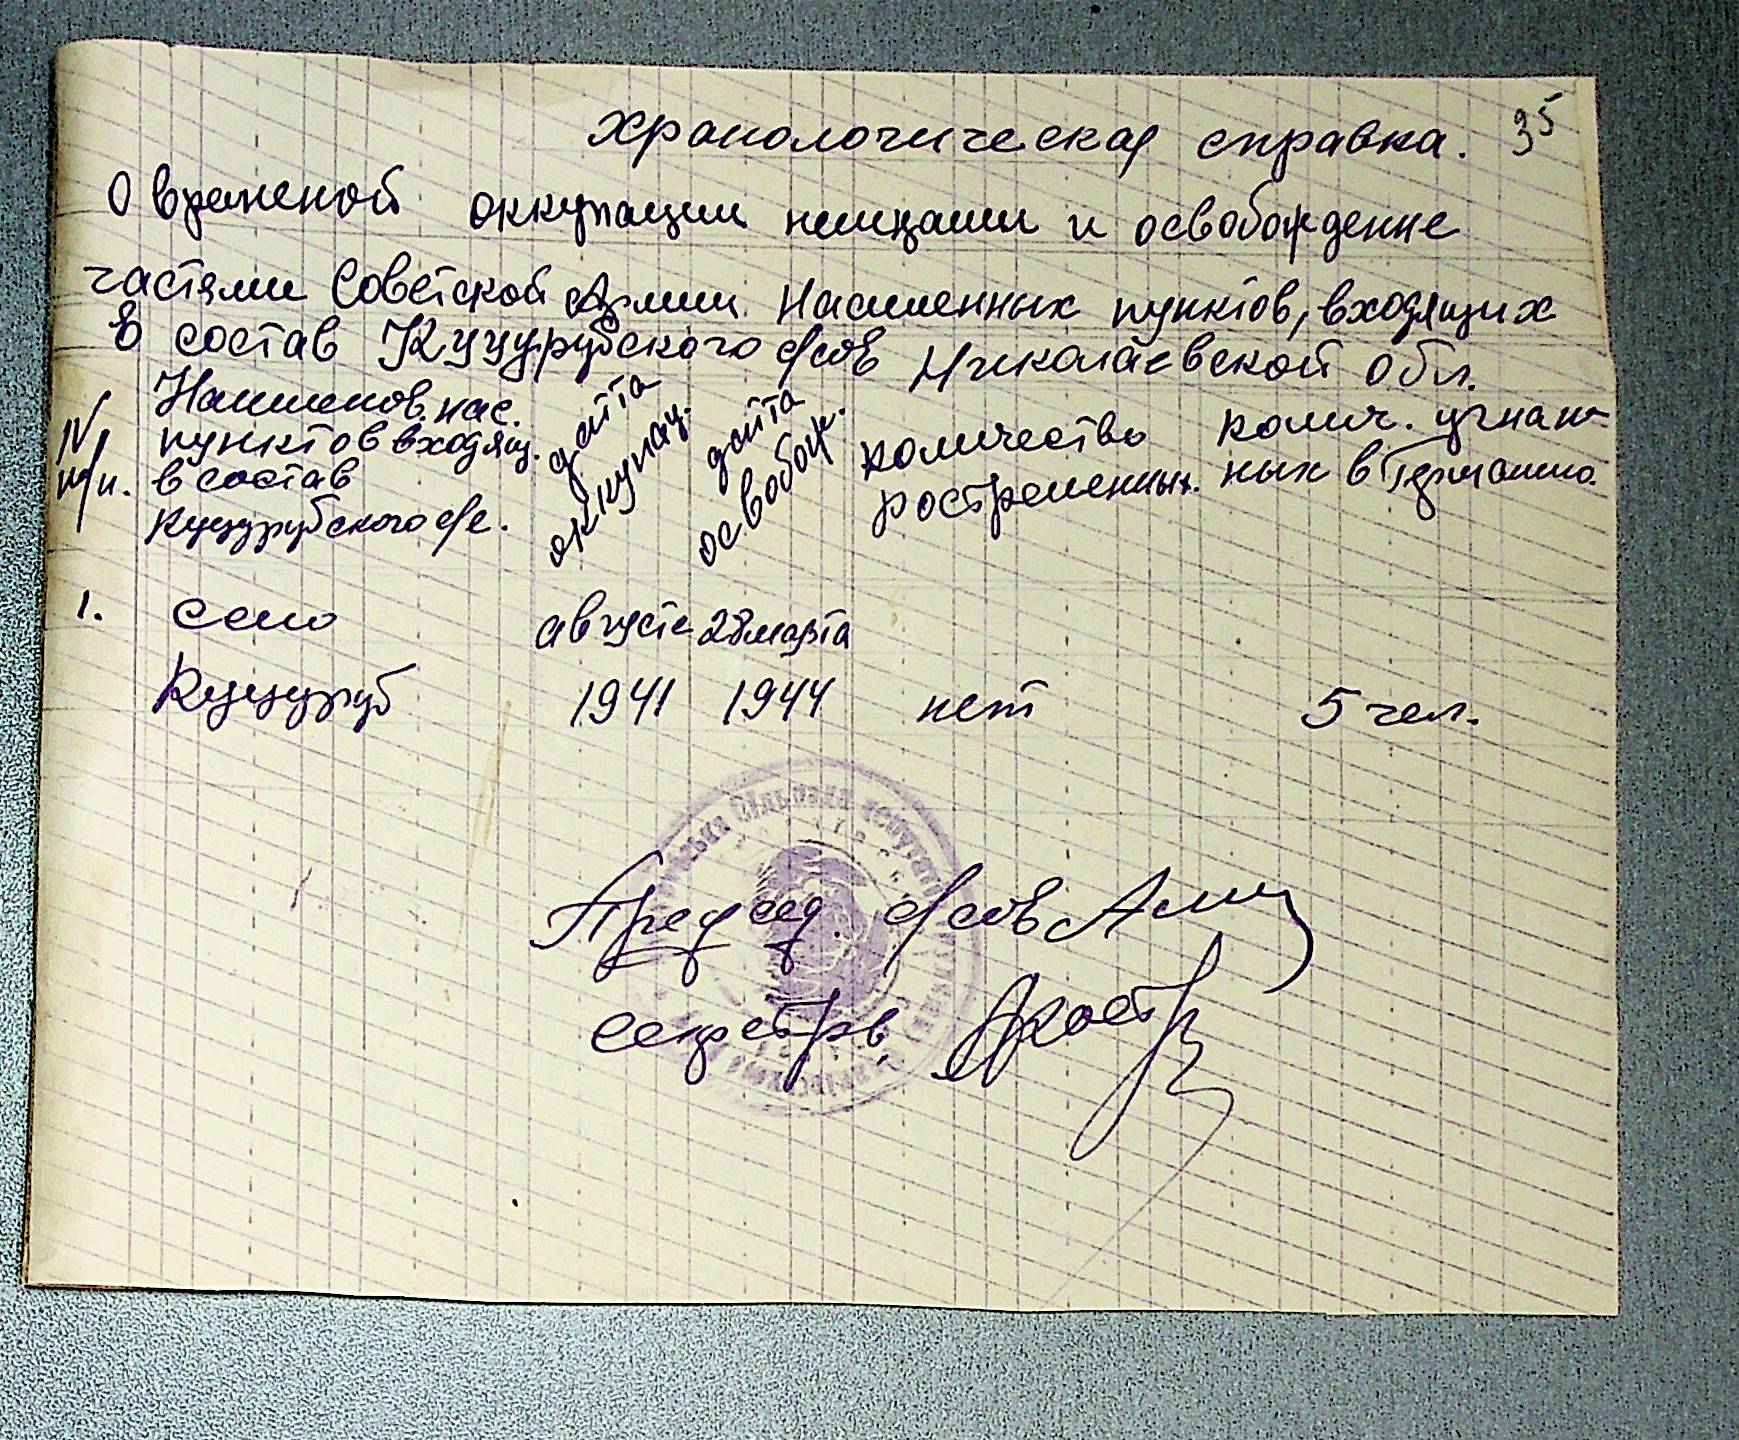 35
хронологическая справка.
О временой оккупации немцами и освобождение
частями Советской Армии населенных пунктов, входящих
в состав Куцурубского с/сов Николаевской обл.
№ п/п.
Наименов. нас. пунктов входящ. в состав Куцурубского с/с.
дата оккупац.
дата освобож.
количество ростреленных.
колич. угнан- ных в Германию.
1. село августе 28 марта
Куцуруб 1941 1944 нет 5 чел.
Председ. с/сов
секретрь